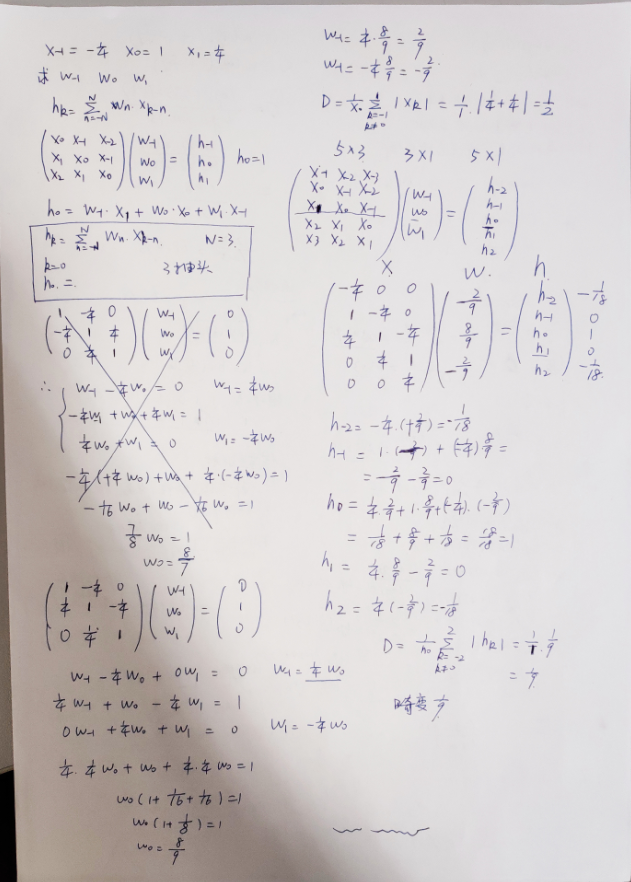 x-1 = -1/4  x0 = 1  x1 = 1/4
求 w-1  w0  w1
hk = Σ(n=-N→N) wn · xk-n.
(x0 x-1 x-2) (w-1) (h-1)
(x1 x0 x-1) (w0) = (h0)  h0=1
(x2 x1 x0) (w1) (h1)
h0 = w-1 · x1 + w0 · x0 + w1 · x-1
hk = Σ(n=-N→N) wn · xk-n.  N=3.
k=0  3抽头
h0 =
(1 -1/4 0) (w-1) (0)
(-1/4 1 1/4) (w0) = (1)
(0 1/4 1) (w1) (0)
∴ w-1 - 1/4 w0 = 0  w-1 = 1/4 w0
-1/4 w-1 + w0 + 1/4 w1 = 1
1/4 w0 + w1 = 0  w1 = -1/4 w0
-1/4 (+1/4 w0) + w0 + 1/4 · (-1/4 w0) = 1
-1/16 w0 + w0 - 1/16 w0 = 1
7/8 w0 = 1
w0 = 8/7
(1 -1/4 0) (w-1) (0)
(1/4 1 -1/4) (w0) = (1)
(0 1/4 1) (w1) (0)
w-1 - 1/4 w0 + 0w1 = 0  w-1 = 1/4 w0
1/4 w-1 + w0 - 1/4 w1 = 1
0w-1 + 1/4 w0 + w1 = 0  w1 = -1/4 w0
1/4 · 1/4 w0 + w0 + 1/4 · 1/4 w0 = 1
w0 (1 + 1/16 + 1/16) = 1
w0 (1 + 1/8) = 1
w0 = 8/9
w-1 = 1/4 · 8/9 = 2/9
w-1 = -1/4 · 8/9 = -2/9
D = 1/x0 Σ(k=-1, k≠0→1) |xk| = 1/1 · |1/4 + 1/4| = 1/2
5×3  3×1  5×1
(x-1 x-2 x-3) (h-2)
(x0 x-1 x-2) (w-1) (h-1)
(x1 x0 x-1) (w0) = (h0)
(x2 x1 x0) (w1) (h1)
(x3 x2 x1) (h2)
X  W.  h.
(-1/4 0 0) (h-2) -1/18
(1 -1/4 0) (-2/9) (h-1) 0
(1/4 1 -1/4) (8/9) = (h0) 1
(0 1/4 1) (-2/9) (h1) 0
(0 0 1/4) (h2) -1/18.
h-2 = -1/4 · (+2/9) = -1/18
h-1 = 1 · (-2/9) + (-1/4) 8/9 =
= -2/9 - 2/9 = 0
h0 = 1/4 · 2/9 + 1 · 8/9 + (-1/4) · (-2/9)
= 1/18 + 8/9 + 1/18 = 18/18 = 1
h1 = 1/4 · 8/9 - 2/9 = 0
h2 = 1/4 (-2/9) = -1/18
D = 1/h0 Σ(k=-2, k≠0→2) |hk| = 1/1 · 1/9
= 1/9
畸变 1/9